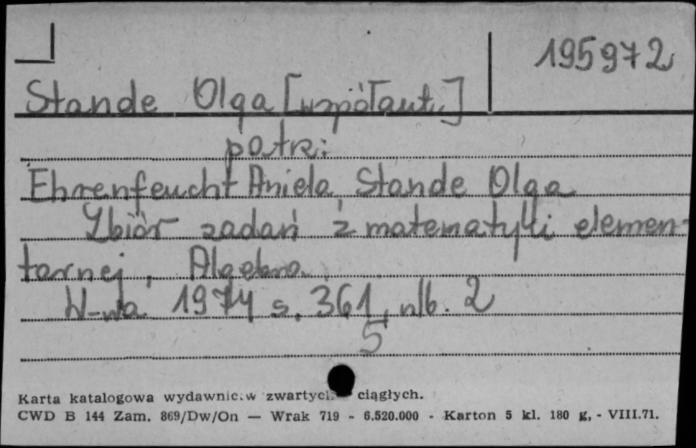 195972
Stande Olga [współaut.]
patrz:
Ehrenfeucht Aniela, Stande Olga
Zbiór zadań z matematyki elemen-
tarnej. Algebra.
W-wa 1974 s. 361, nlb. 2
5
Karta katalogowa wydawnic.w zwartych ciągłych.
CWD B 144 Zam. 869/Dw/On — Wrak 719 - 6.520.000 - Karton 5 kl. 180 g, - VIII.71.